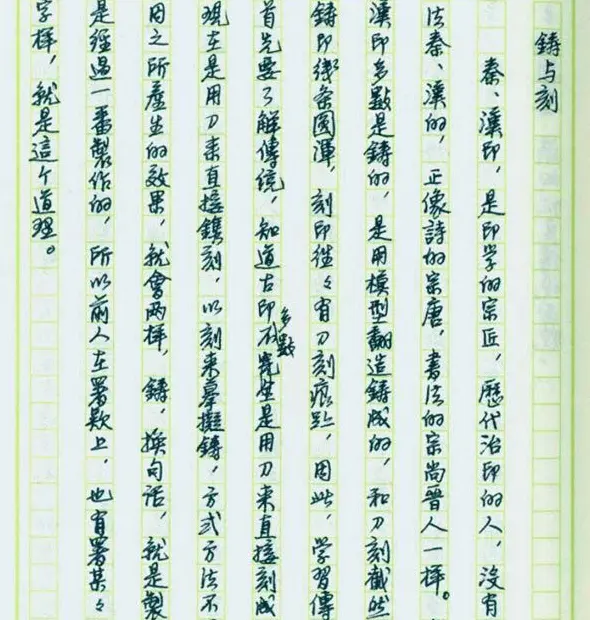 鑄与刻
秦、漢印，是印学的宗匠，歷代治印的人，沒有
法秦、漢的，正像詩的宗唐，書法的宗尚晋人一様。
漢印多數是鑄的，是用模型翻造鑄成的，和刀刻截然
鑄印綫条圓渾，刻印往々有刀刻痕跡，因此，学習傳
首先要了解傳統，知道古印多數是用刀来直接刻成
現在是用刀来直接鐫刻，以刻来摹擬鑄，方式方法不
因之所產生的效果，就會两様，鑄，換句话，就是製
是經過一番製作的，所以前人在署款上，也有署某々
字様，就是這个道理。